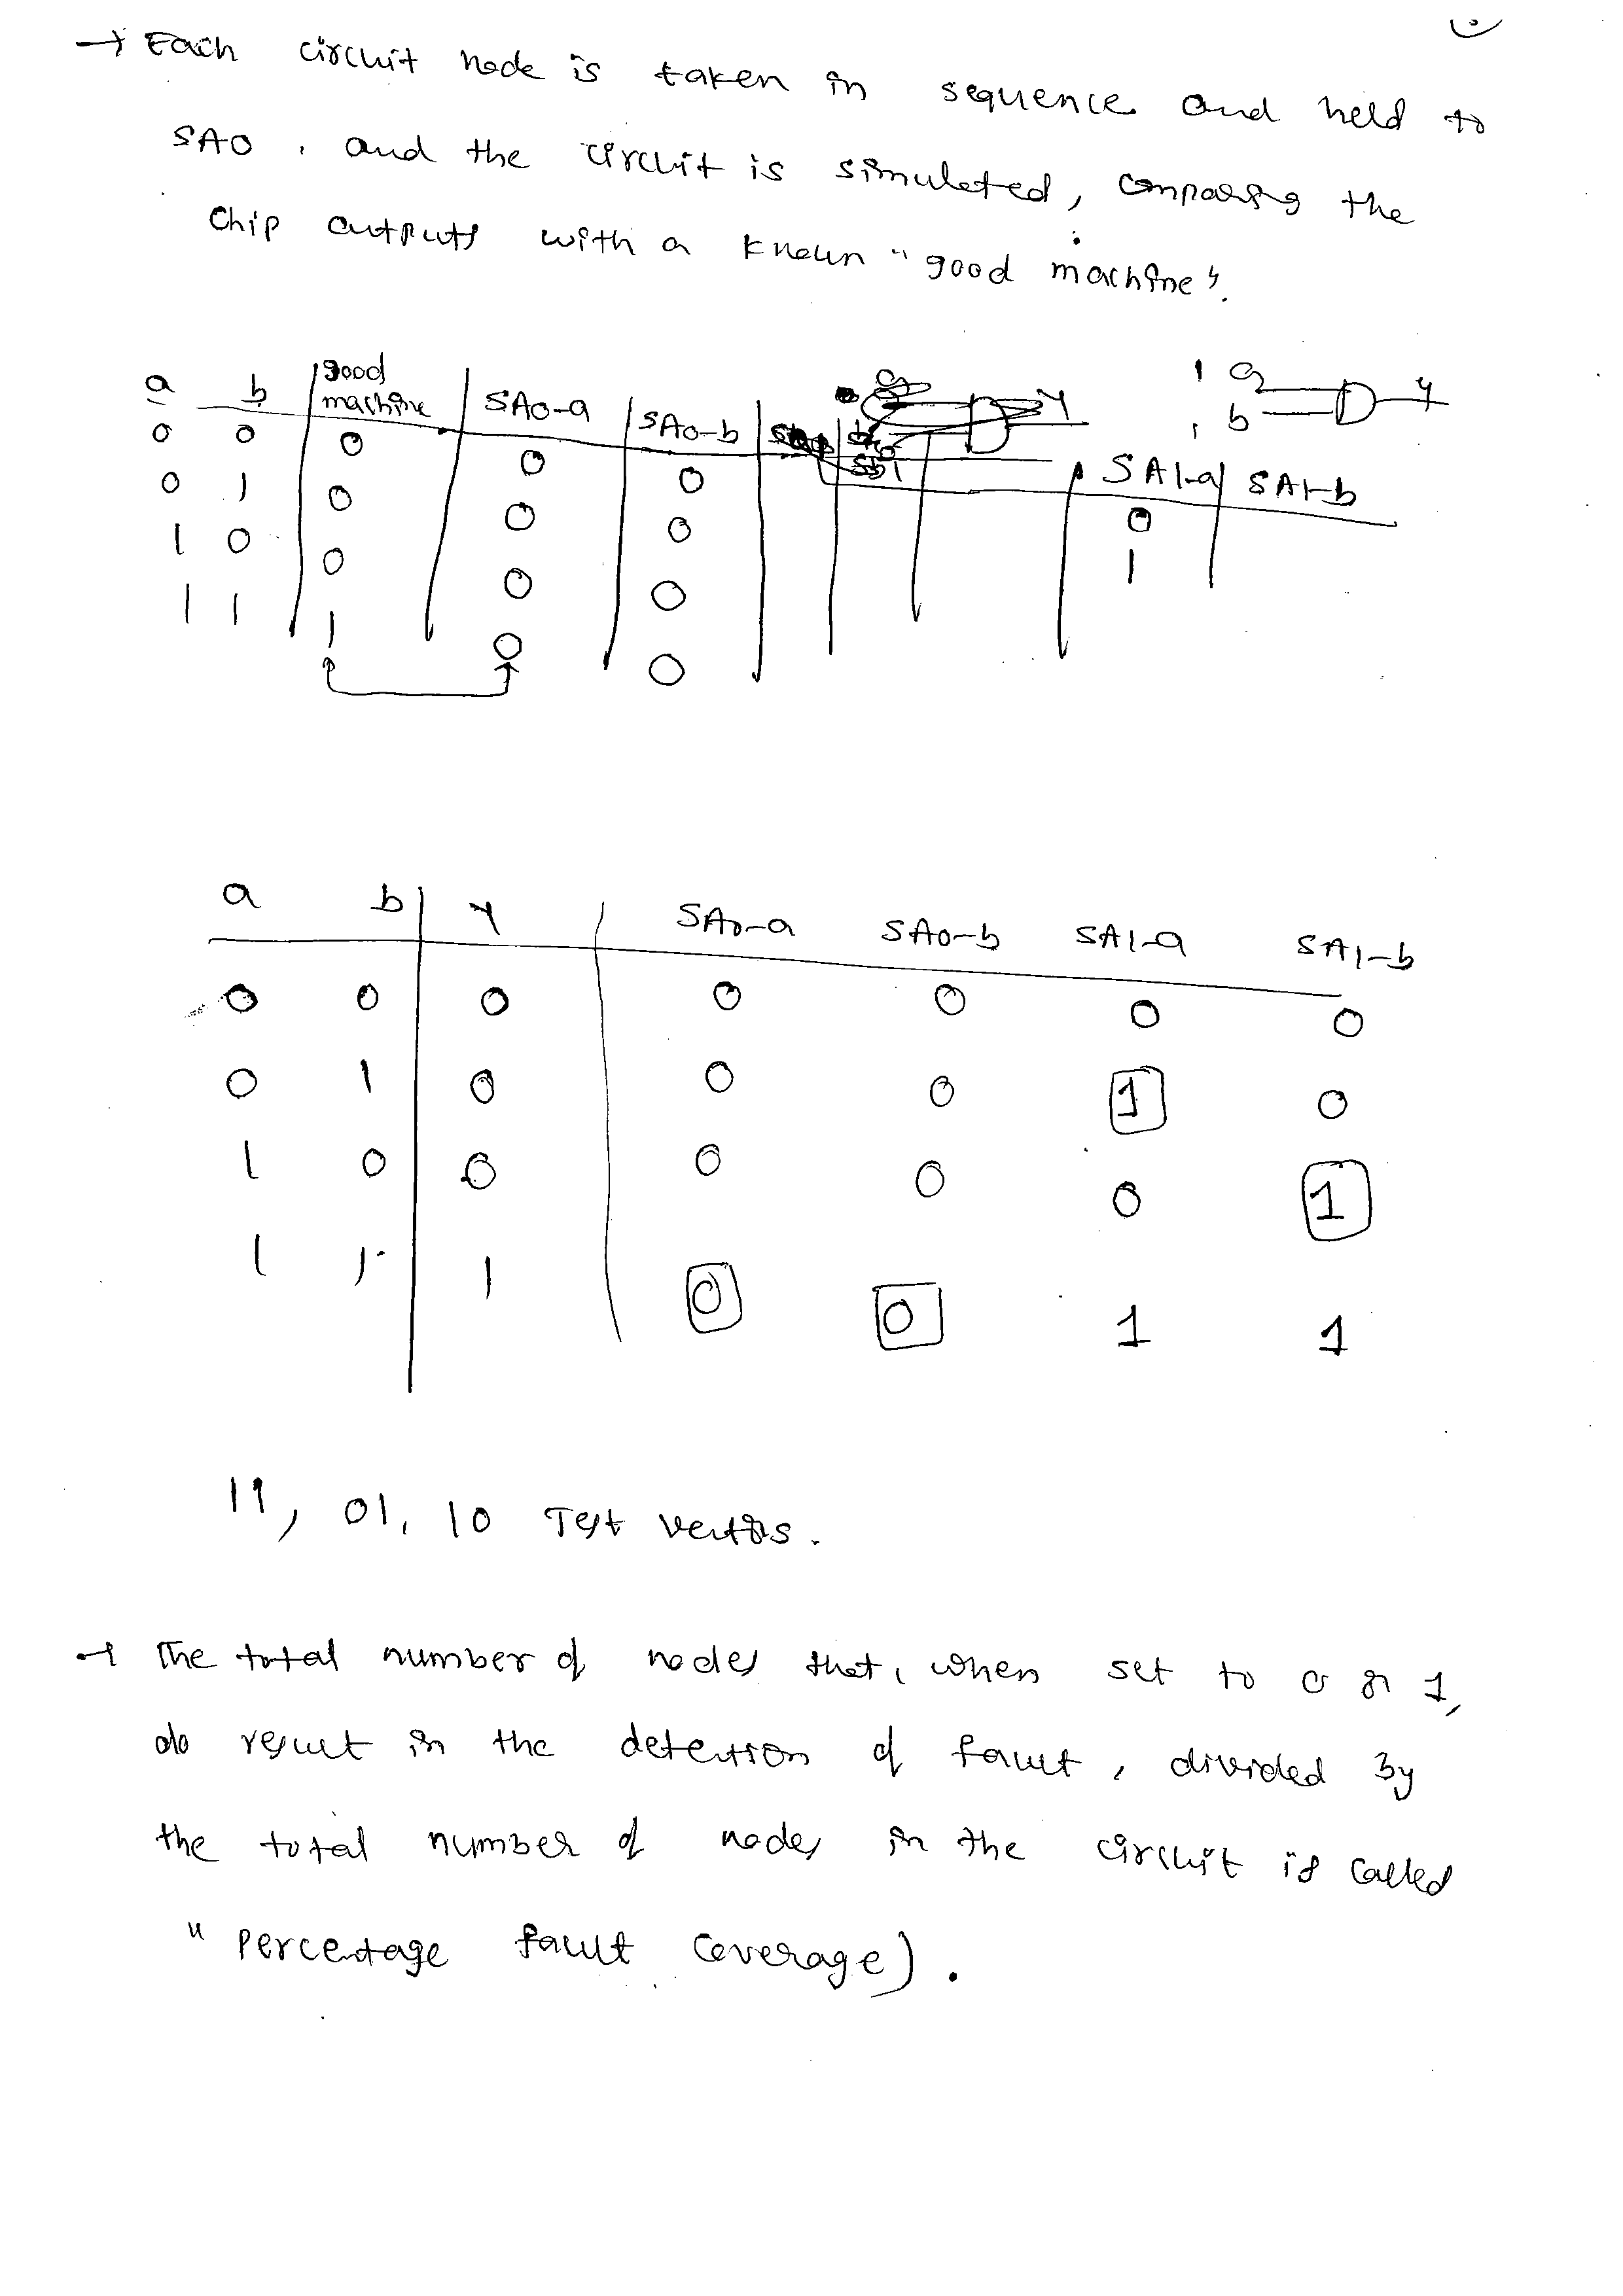 → Each circuit node is taken in sequence and held to
SA0, and the circuit is simulated, comparing the
chip outputs with a known "good machine".
a b good machine SA0-a SA0-b SA1-a SA1-b
0 0 0 0 0 0
0 1 0 0 0 1
1 0 0 0 0
1 1 1 0 0
1 a
1 b
y
a b Y SA0-a SA0-b SA1-a SA1-b
0 0 0 0 0 0 0
0 1 0 0 0 1 0
1 0 0 0 0 0 1
1 1 1 0 0 1 1
11, 01, 10 Test vectors.
→ The total number of nodes that, when set to 0 or 1,
do result in the detection of fault, divided by
the total number of nodes in the circuit is called
"percentage fault coverage).